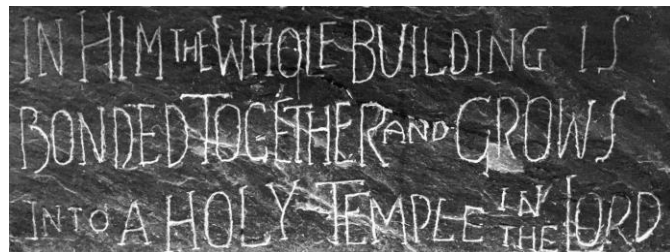 IN HIM THE WHOLE BUILDING IS
BONDED TOGETHER AND GROWS
INTO A HOLY TEMPLE IN THE LORD